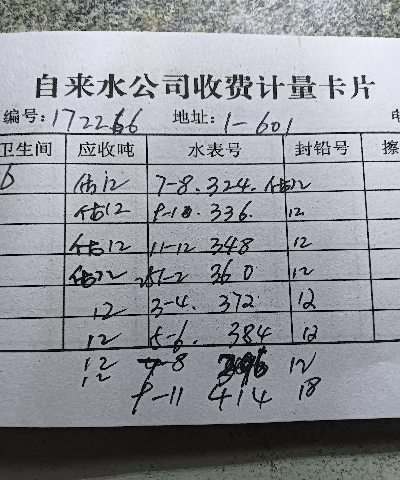 自来水公司收费计量卡片
编号: 172266 地址: 1-601 电
卫生间 应收吨 水表号 封铅号 擦
6 估12 7-8. 324. 估12
估12 9-10. 336. 12
估12 11-12 348 12
估12 1-2 360 12
12 3-4. 372 12
12 5-6. 384 12
12 7-8 396 12
12 9-11 414 18